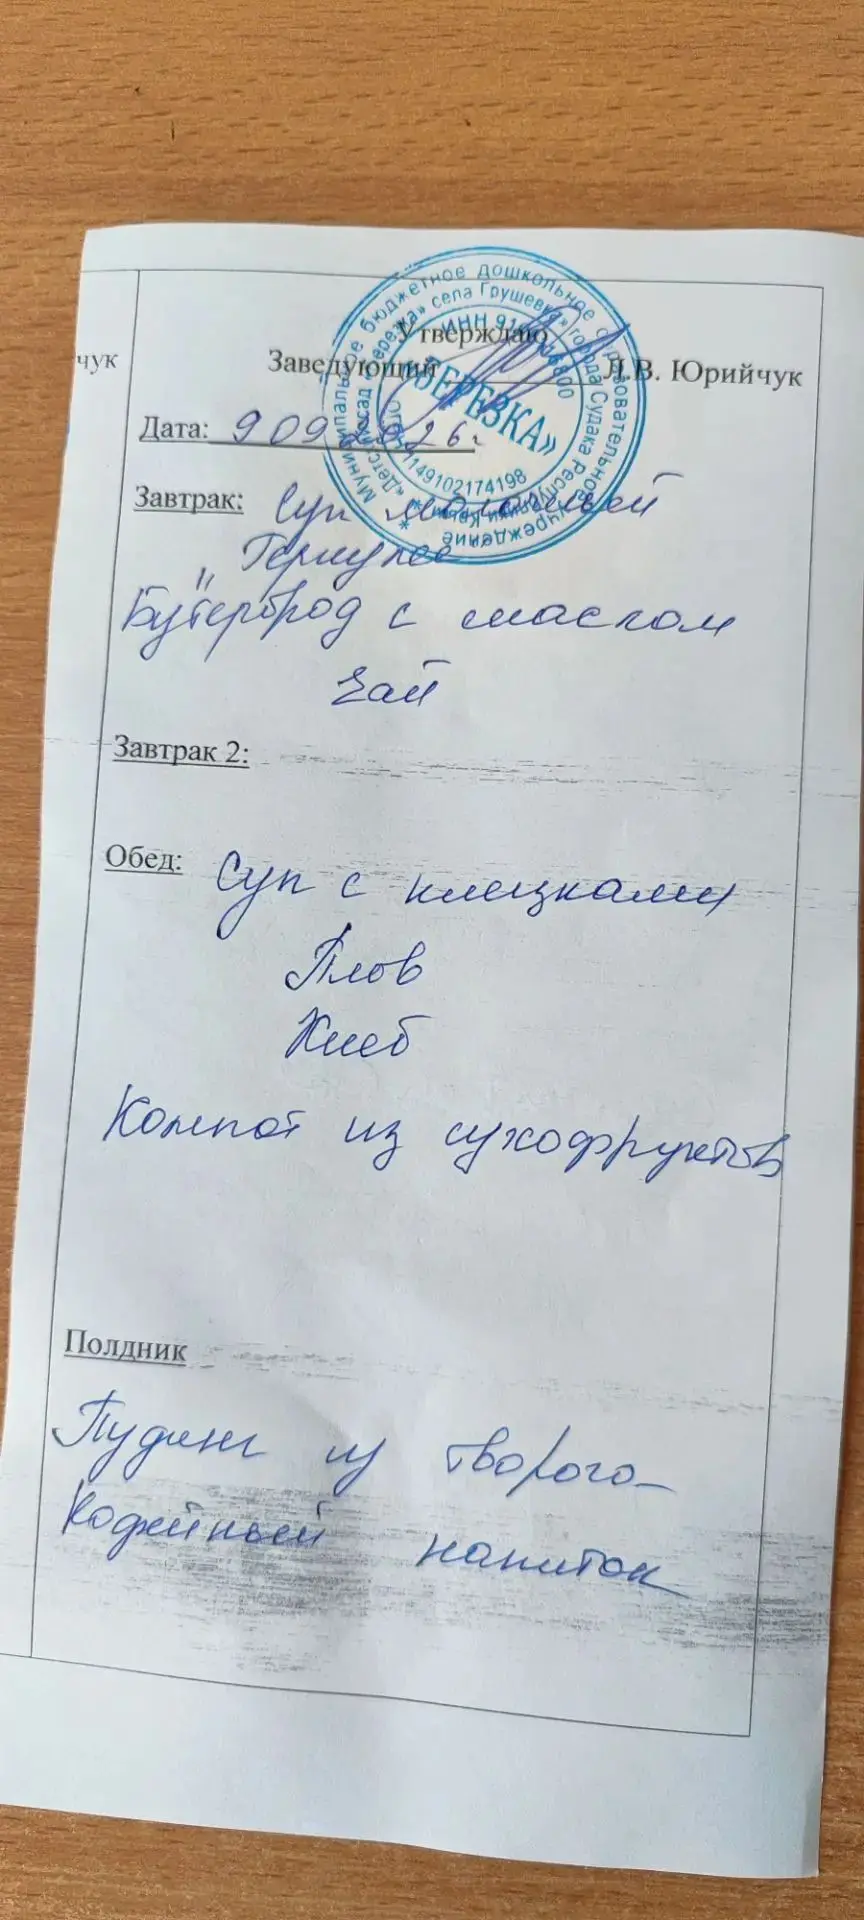 Утверждаю
чук
Заведующий Л.В. Юрийчук
Муниципальное бюджетное дошкольное образовательное учреждение
«Детский сад «Березка» села Грушевка» города Судака Республики Крым
ИНН
ОГРН 1149102174198
«БЕРЕЗКА»
Дата: 9 09 2026 г
Завтрак: Суп молочный
"Геркулес
Бутерброд с маслом
Чай
Завтрак 2:
Обед: Суп с клецками
Плов
Хлеб
Компот из сухофруктов
Полдник
Пудинг из творога
Кофейный напиток